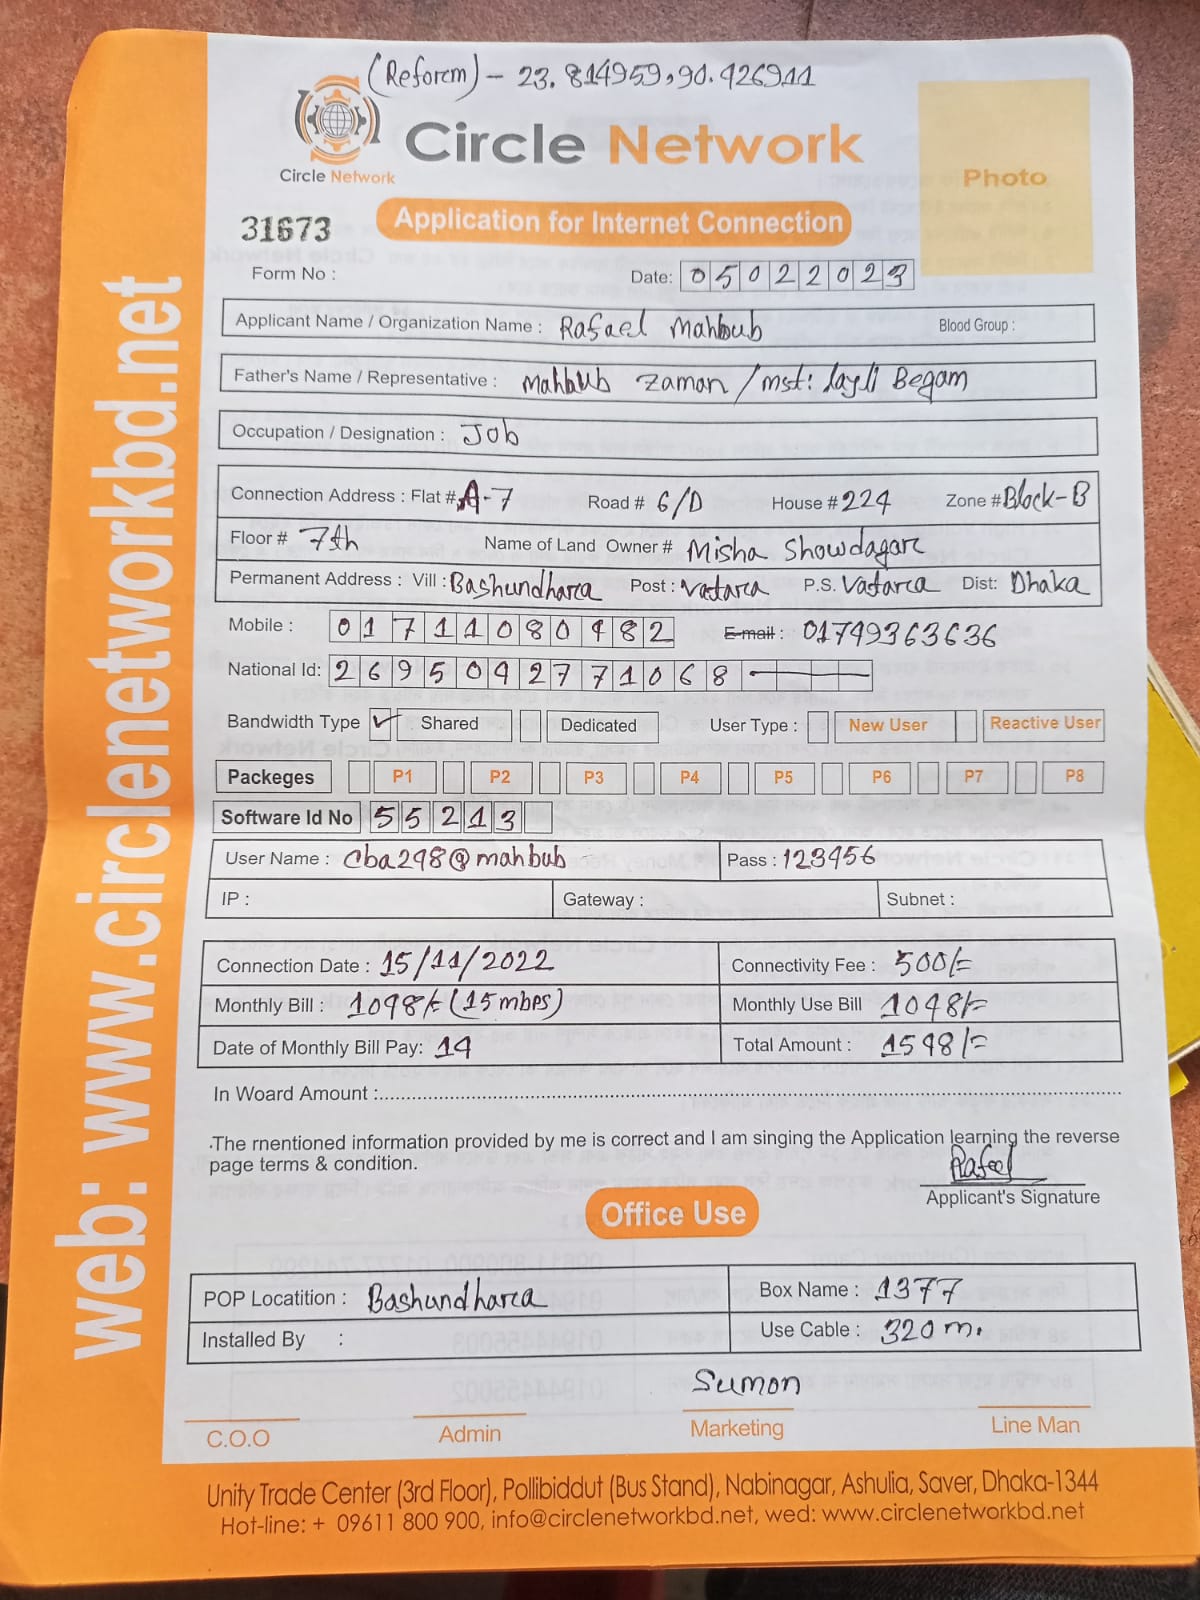 (Reform) - 23.814959,90.426911
Circle Network
Circle Network
Photo
31673
Application for Internet Connection
Form No :
Date: 05022023
Applicant Name / Organization Name : Rafael Mahbub Blood Group :
Father's Name / Representative : Mahbub Zaman / mst: Layli Begam
Occupation / Designation : Job
Connection Address : Flat # A-7 Road # 6/D House # 224 Zone # Block-B
Floor # 7th Name of Land Owner # Misha Showdagar
Permanent Address : Vill : Bashundhara Post : Vatara P.S. Vatara Dist: Dhaka
Mobile : 01711080482 E-mail : 01749363636
National Id: 2695092771068
Bandwidth Type ✓ Shared Dedicated User Type : New User Reactive User
Packeges P1 P2 P3 P4 P5 P6 P7 P8
Software Id No 55213
User Name : cba298@mahbub Pass : 123456
IP : Gateway : Subnet :
Connection Date : 15/11/2022 Connectivity Fee : 500/=
Monthly Bill : 1098/= (15mbps) Monthly Use Bill 1098/=
Date of Monthly Bill Pay: 14 Total Amount : 1598/=
In Woard Amount :
.The rnentioned information provided by me is correct and I am singing the Application learning the reverse
page terms & condition.
Rafeel
Applicant's Signature
Office Use
POP Locatition : Bashundhara Box Name : 1377
Installed By : Use Cable : 320 m.
Sumon
C.O.O Admin Marketing Line Man
Unity Trade Center (3rd Floor), Pollibiddut (Bus Stand), Nabinagar, Ashulia, Saver, Dhaka-1344
Hot-line: + 09611 800 900, info@circlenetworkbd.net, wed: www.circlenetworkbd.net
web: www.circlenetworkbd.net